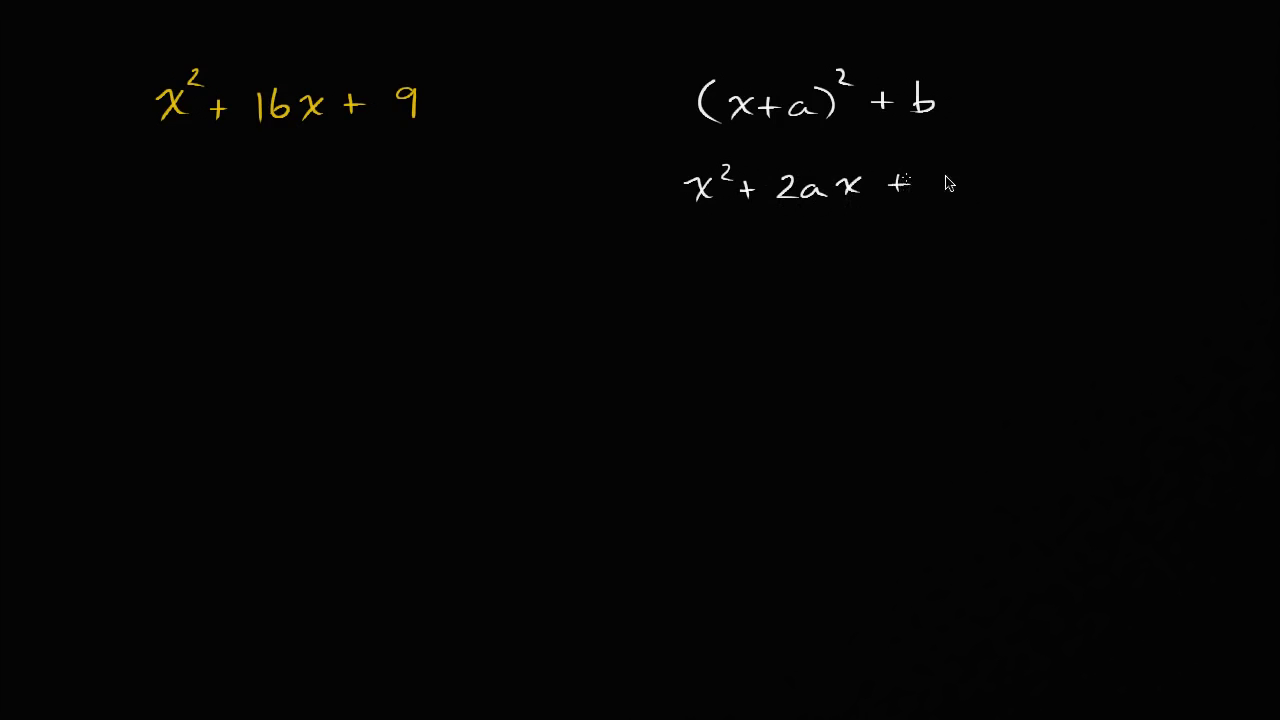 x² + 16x + 9
(x+a)² + b
x² + 2ax +